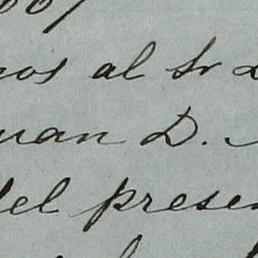 nos al Sr D
uan D.
del presen